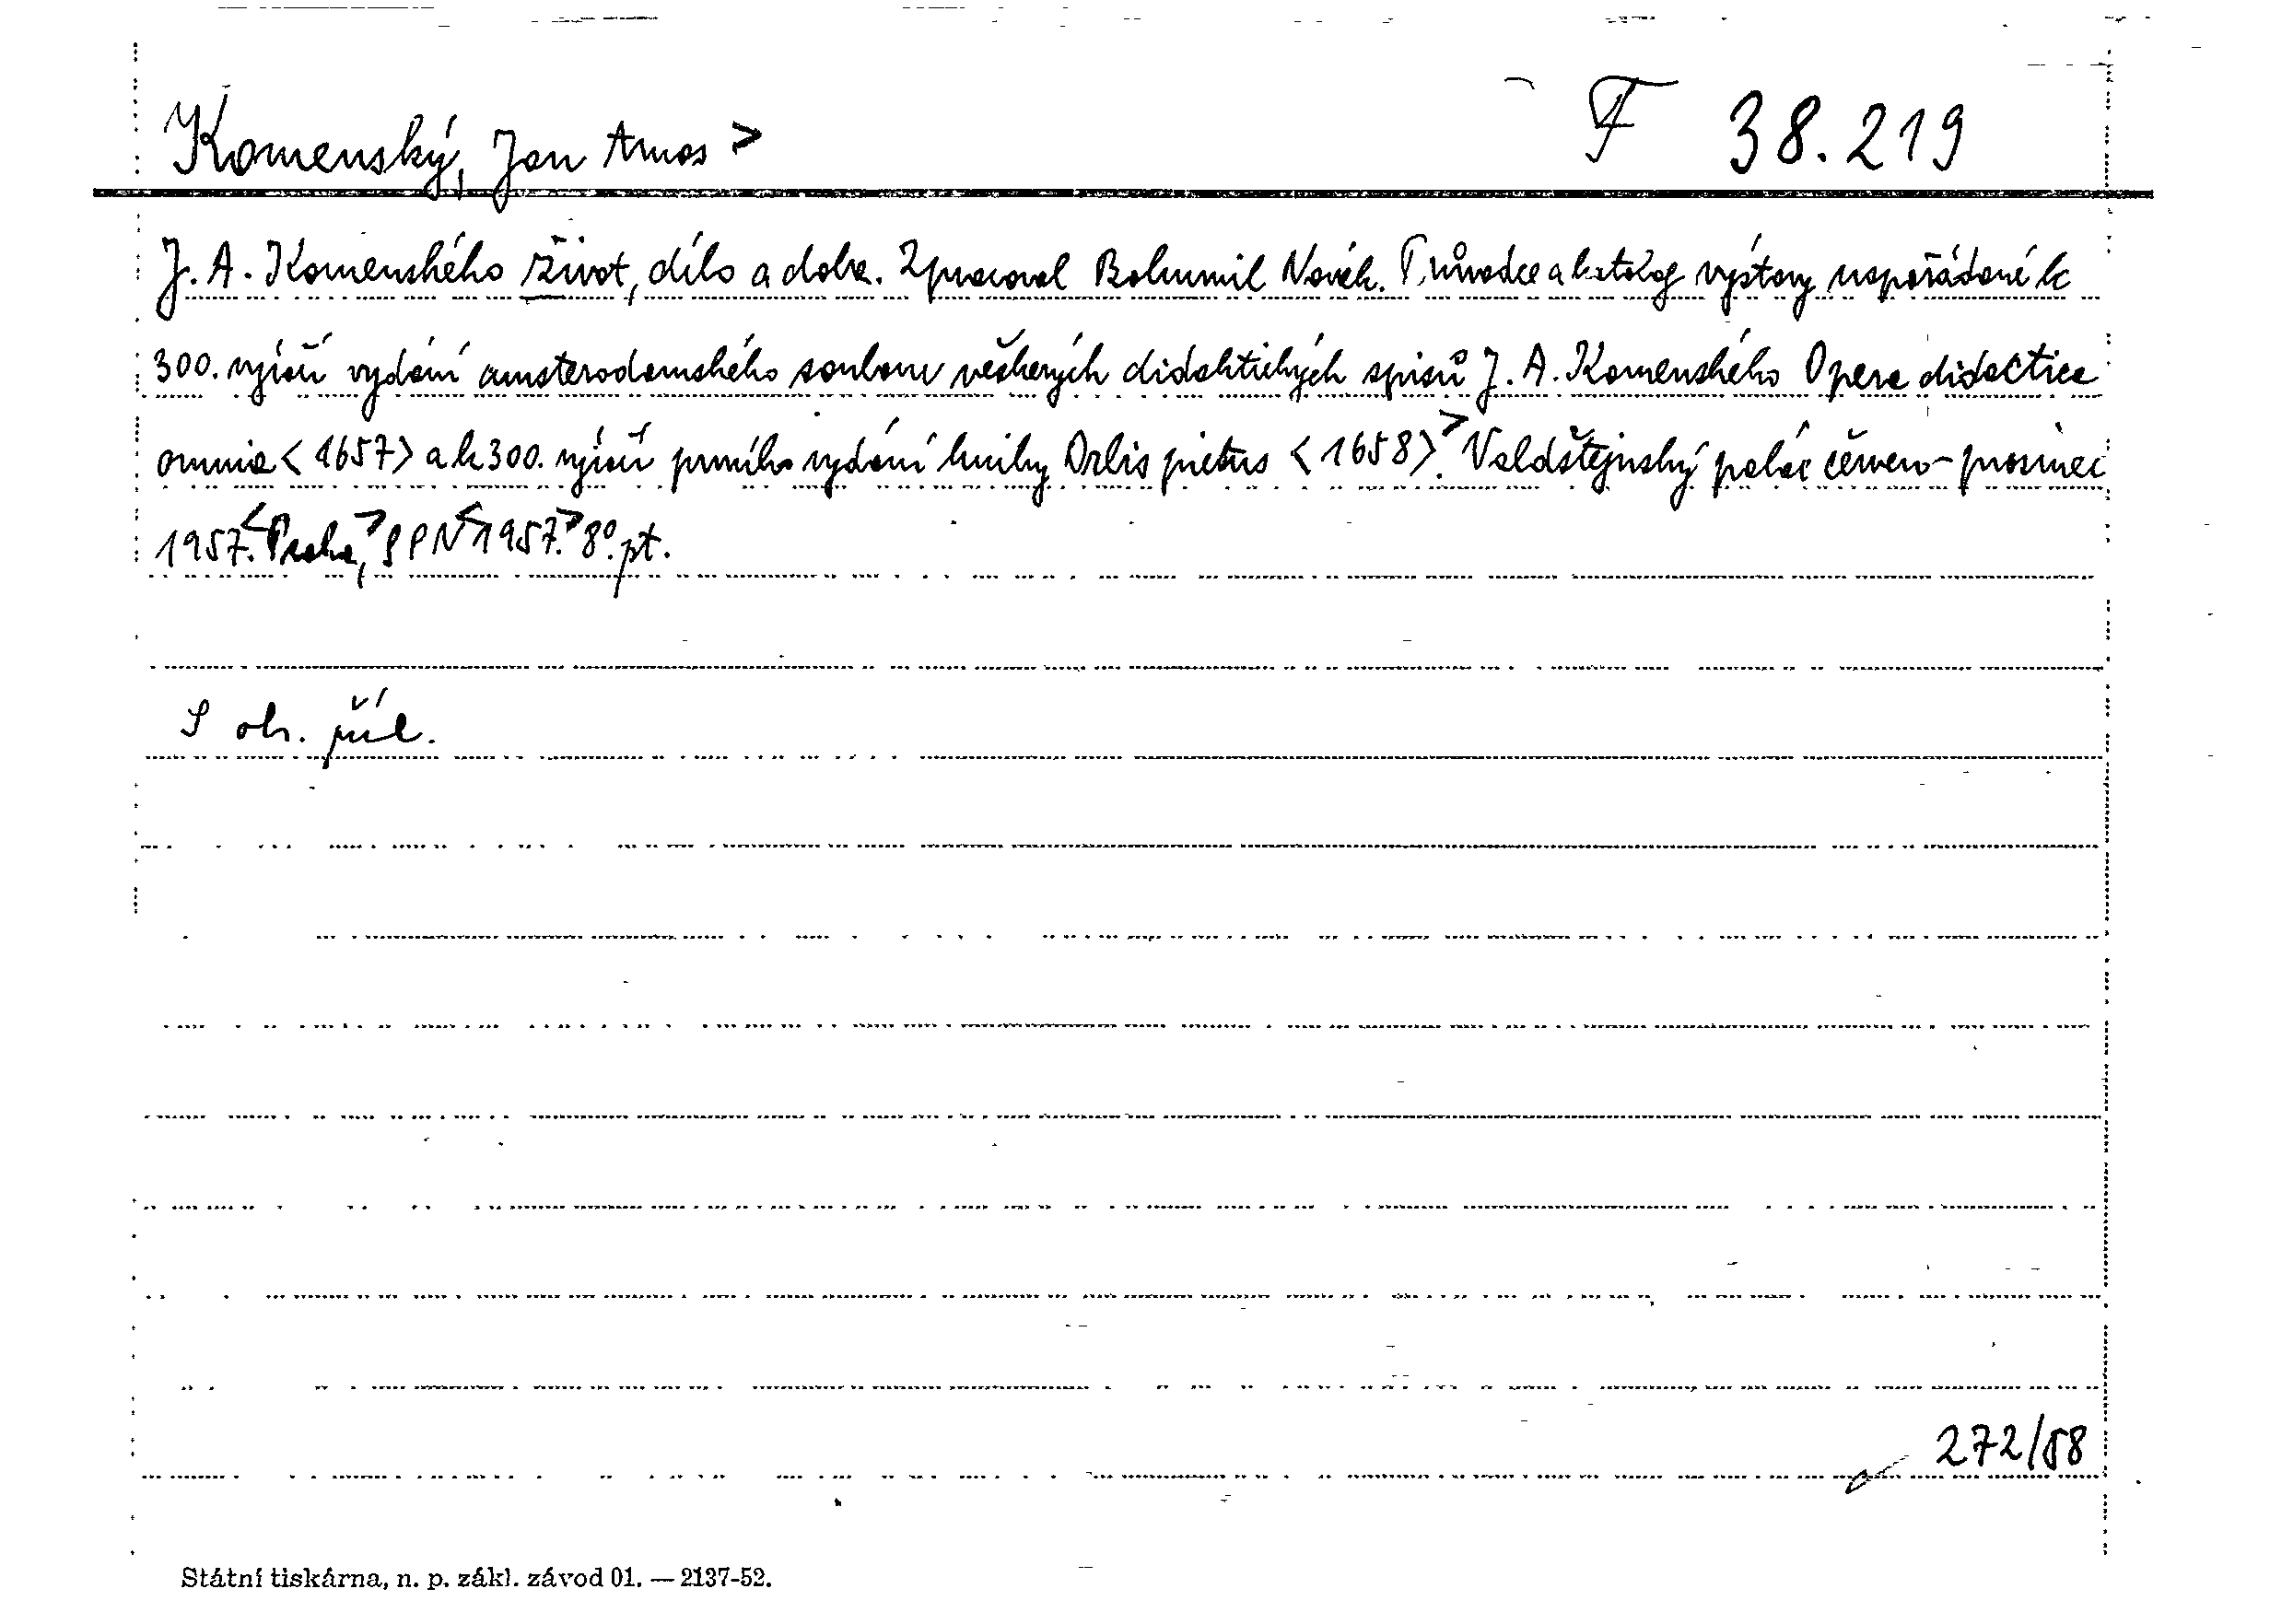 Komenský, Jan Amos > F 38.219
J. A. Komenského život, dílo a doba. Zpracoval Bohumil Novák. Průvodce a katalog výstavy uspořádané k
300. výročí vydání amsterodamského souboru veškerých didaktických spisů J. A. Komenského Opera didactica
omnia <1657> a k 300. výročí prvního vydání knihy Orbis pictus <1658>.> Valdštejnský palác červen-prosinec
1957. <Praha,> SPN <1957.> 8°. pt.
S obr. příl.
272/58
Státní tiskárna, n. p. zákl. závod 01. — 2137-52.